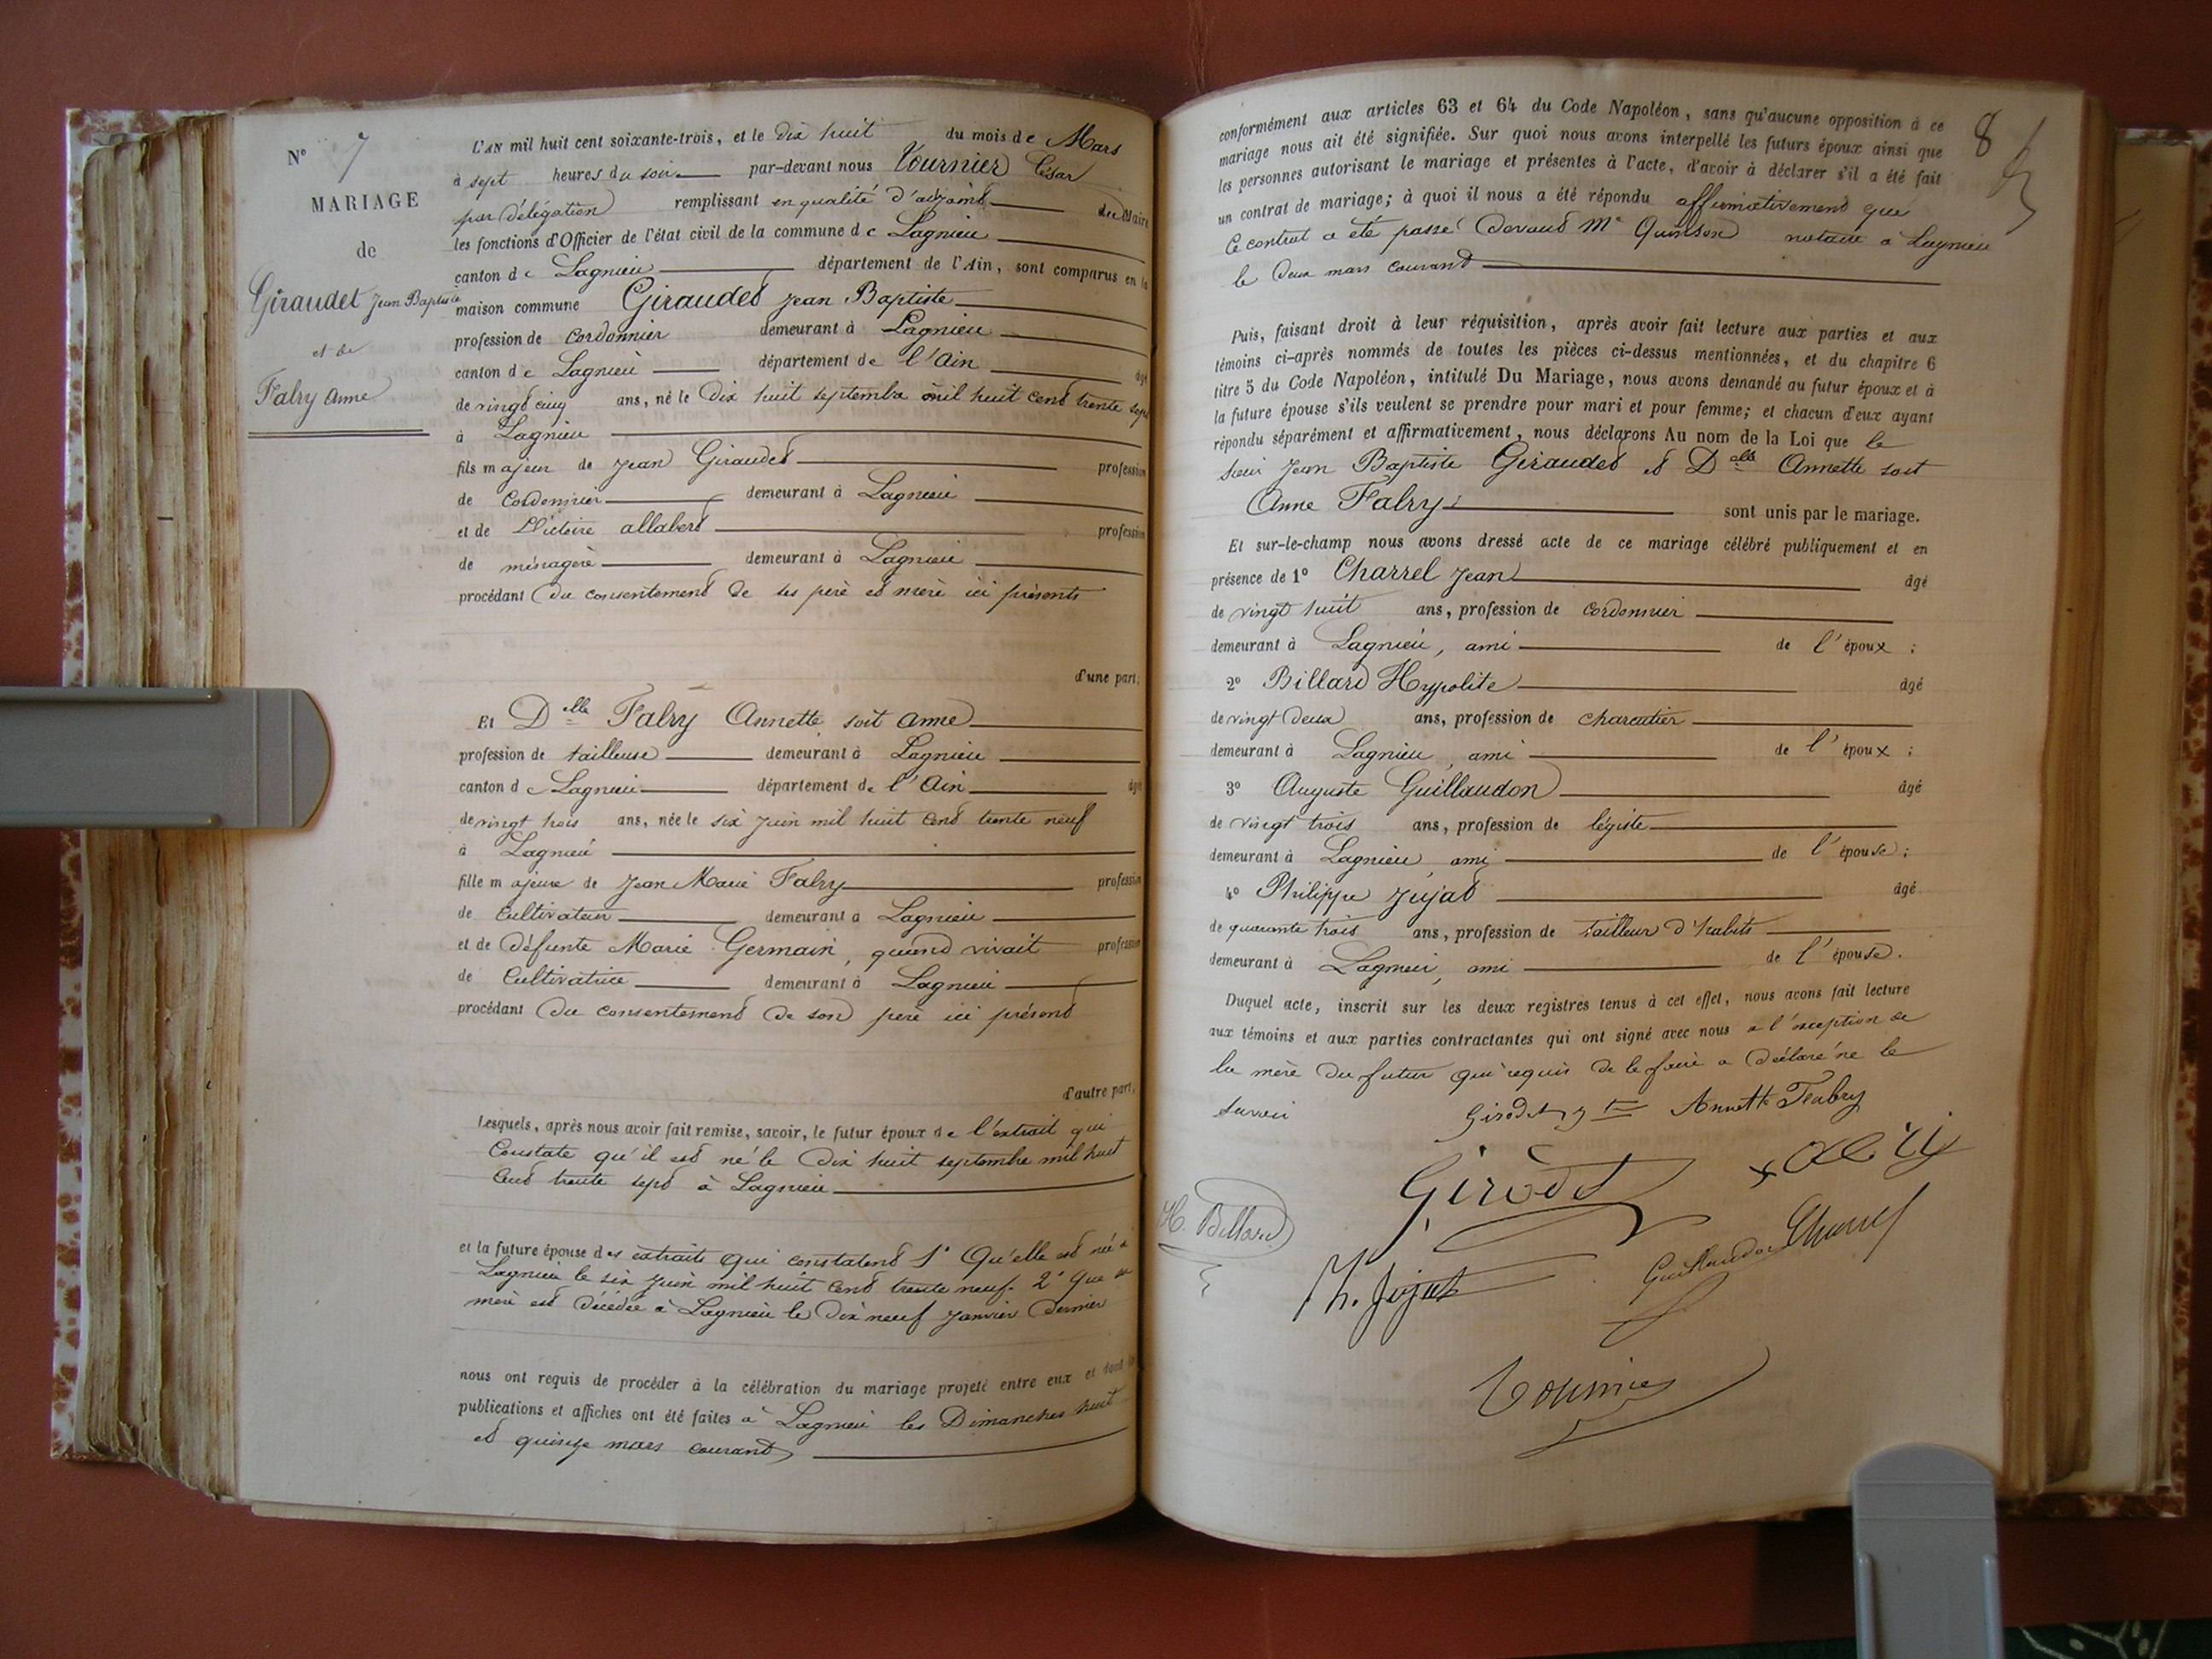 N° 7
MARIAGE
de
Giraudet Jean Baptiste
et de
Fabry Anne
L'AN mil huit cent soixante-trois, et le dix huit du mois de Mars
à sept heures du soir par-devant nous Tournier César
par délégation remplissant en qualité d'adjoint du Maire
les fonctions d'Officier de l'état civil de la commune de Lagnieu
canton de Lagnieu département de l'Ain, sont comparus en la
maison commune Giraudet Jean Baptiste
profession de cordonnier demeurant à Lagnieu
canton de Lagnieu département de l'Ain âgé
de vingt cinq ans, né le dix huit septembre mil huit cent trente sept
à Lagnieu
fils majeur de Jean Giraudet profession
de Cordonnier demeurant à Lagnieu
et de Victoire allabert profession
de ménagère demeurant à Lagnieu
procédant du consentement de ses père et mère ici présents
d'une part;
Et Delle Fabry Annette soit Anne
profession de tailleuse demeurant à Lagnieu
canton de Lagnieu département de l'Ain âgé
de vingt trois ans, née le six juin mil huit cent trente neuf
à Lagnieu
fille majeure de Jean Marie Fabry profession
de Cultivateur demeurant à Lagnieu
et de défunte Marie Germain, quand vivait profession
de Cultivatrice demeurant à Lagnieu
procédant du consentement de son père ici présent
d'autre part,
Lesquels, après nous avoir fait remise, savoir, le futur époux de l'extrait qui
Constate qu'il est né le dix huit septembre mil huit
Cent trente sept à Lagnieu
et la future épouse des extraits qui constatent 1° Qu'elle est née à
Lagnieu le six juin mil huit Cent trente neuf. 2° Que sa
mère est décédée à Lagnieu le dix neuf Janvier dernier
nous ont requis de procéder à la célébration du mariage projeté entre eux et dont les
publications et affiches ont été faites à Lagnieu les Dimanches huit
et quinze mars courant
8
conformément aux articles 63 et 64 du Code Napoléon, sans qu'aucune opposition à ce
mariage nous ait été signifiée. Sur quoi nous avons interpellé les futurs époux ainsi que
les personnes autorisant le mariage et présentes à l'acte, d'avoir à déclarer s'il a été fait
un contrat de mariage; à quoi il nous a été répondu affirmativement que
Ce contrat a été passé devant Me Quinson notaire à Lagnieu
le deux mars courant
Puis, faisant droit à leur réquisition, après avoir fait lecture aux parties et aux
témoins ci-après nommés de toutes les pièces ci-dessus mentionnées, et du chapitre 6
titre 5 du Code Napoléon, intitulé Du Mariage, nous avons demandé au futur époux et à
la future épouse s'ils veulent se prendre pour mari et pour femme; et chacun d'eux ayant
répondu séparément et affirmativement, nous déclarons Au nom de la Loi que le
sieur Jean Baptiste Giraudet et Delle Annette soit
Anne Fabry sont unis par le mariage.
Et sur-le-champ nous avons dressé acte de ce mariage célébré publiquement et en
présence de 1° Charrel Jean âgé
de vingt huit ans, profession de cordonnier
demeurant à Lagnieu, ami de l'époux;
2° Billard Hypolite âgé
de vingt deux ans, profession de charcutier
demeurant à Lagnieu, ami de l'époux;
3° Auguste Guillaudon âgé
de vingt trois ans, profession de légiste
demeurant à Lagnieu, ami de l'épouse;
4° Philippe Jujat âgé
de quarante trois ans, profession de tailleur d'habits
demeurant à Lagnieu, ami de l'épouse.
Duquel acte, inscrit sur les deux registres tenus à cet effet, nous avons fait lecture
aux témoins et aux parties contractantes qui ont signé avec nous a l'exception de
la mère du futur qui requis de le faire a déclaré ne le
savoir
Girodet Annette Fabry
Girodet
H. Billard
Ph. Jujat Guillaudon Charrel
Tournier